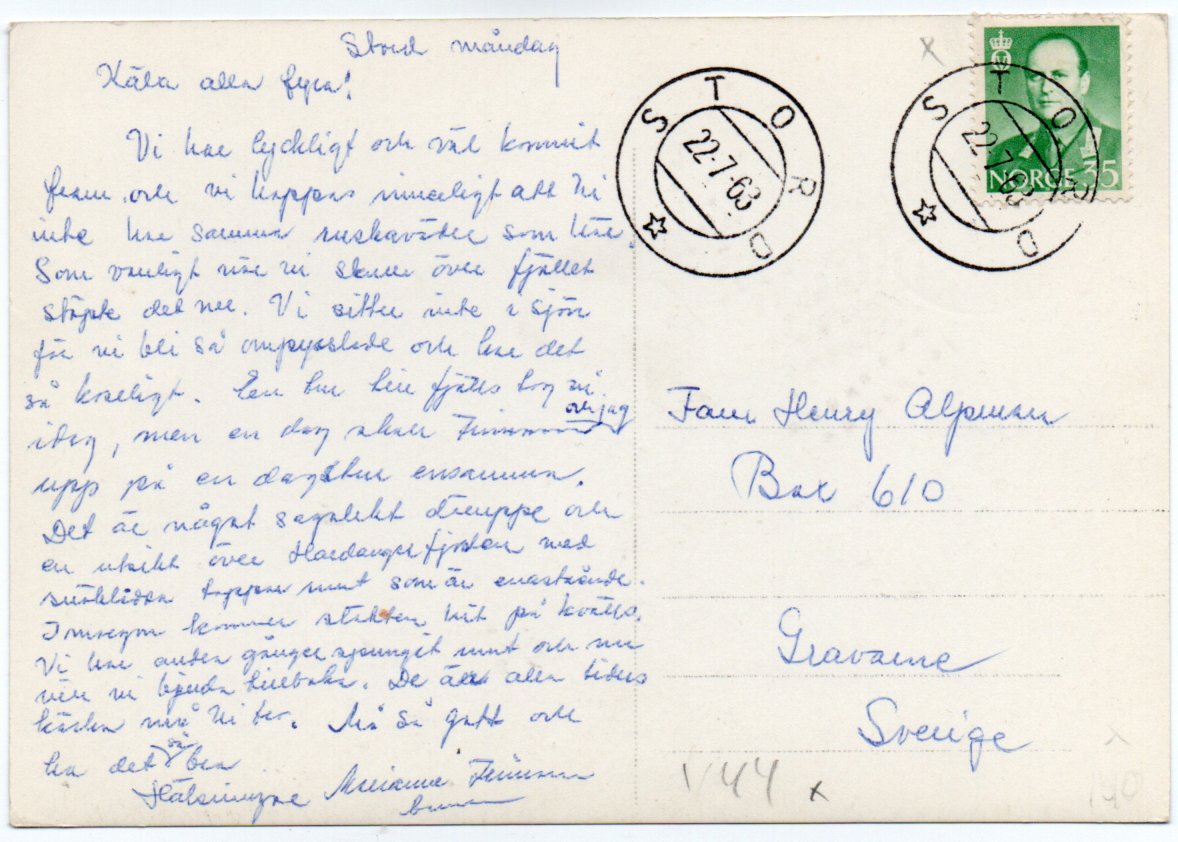 Stord måndag
Kära alla fyra!
Vi har lyckligt och väl kommit
fram och vi hoppas innerligt att Ni
inte har samma ruskaväder som här.
Som vanligt när vi skulle över fjället
stöpte det ner. Vi sitter inte i sjön
för vi bli så ompysslade och har det
så koseligt. En tur till fjälls tog vi
idag, men en dag skall och jag
upp på en dagstur ensamma.
Det är något sagolikt däruppe och
en utsikt över Hardangerfjorden med
snöklädda toppar runt som är enastående.
Imorgon kommer släkten hit på kvälls.
Vi har andra gånger sprungit runt och nu
vill vi bjuda tillbaka. De är alla tiders
må Ni tro. Må så gott och
ha det så bra
Hälsningar Marianne
STORD
22.7.63
STORD
22.7.63
NORGE 35
Fam Henry Alpman
Box 610
Gravarne
Sverige
V44
x
x